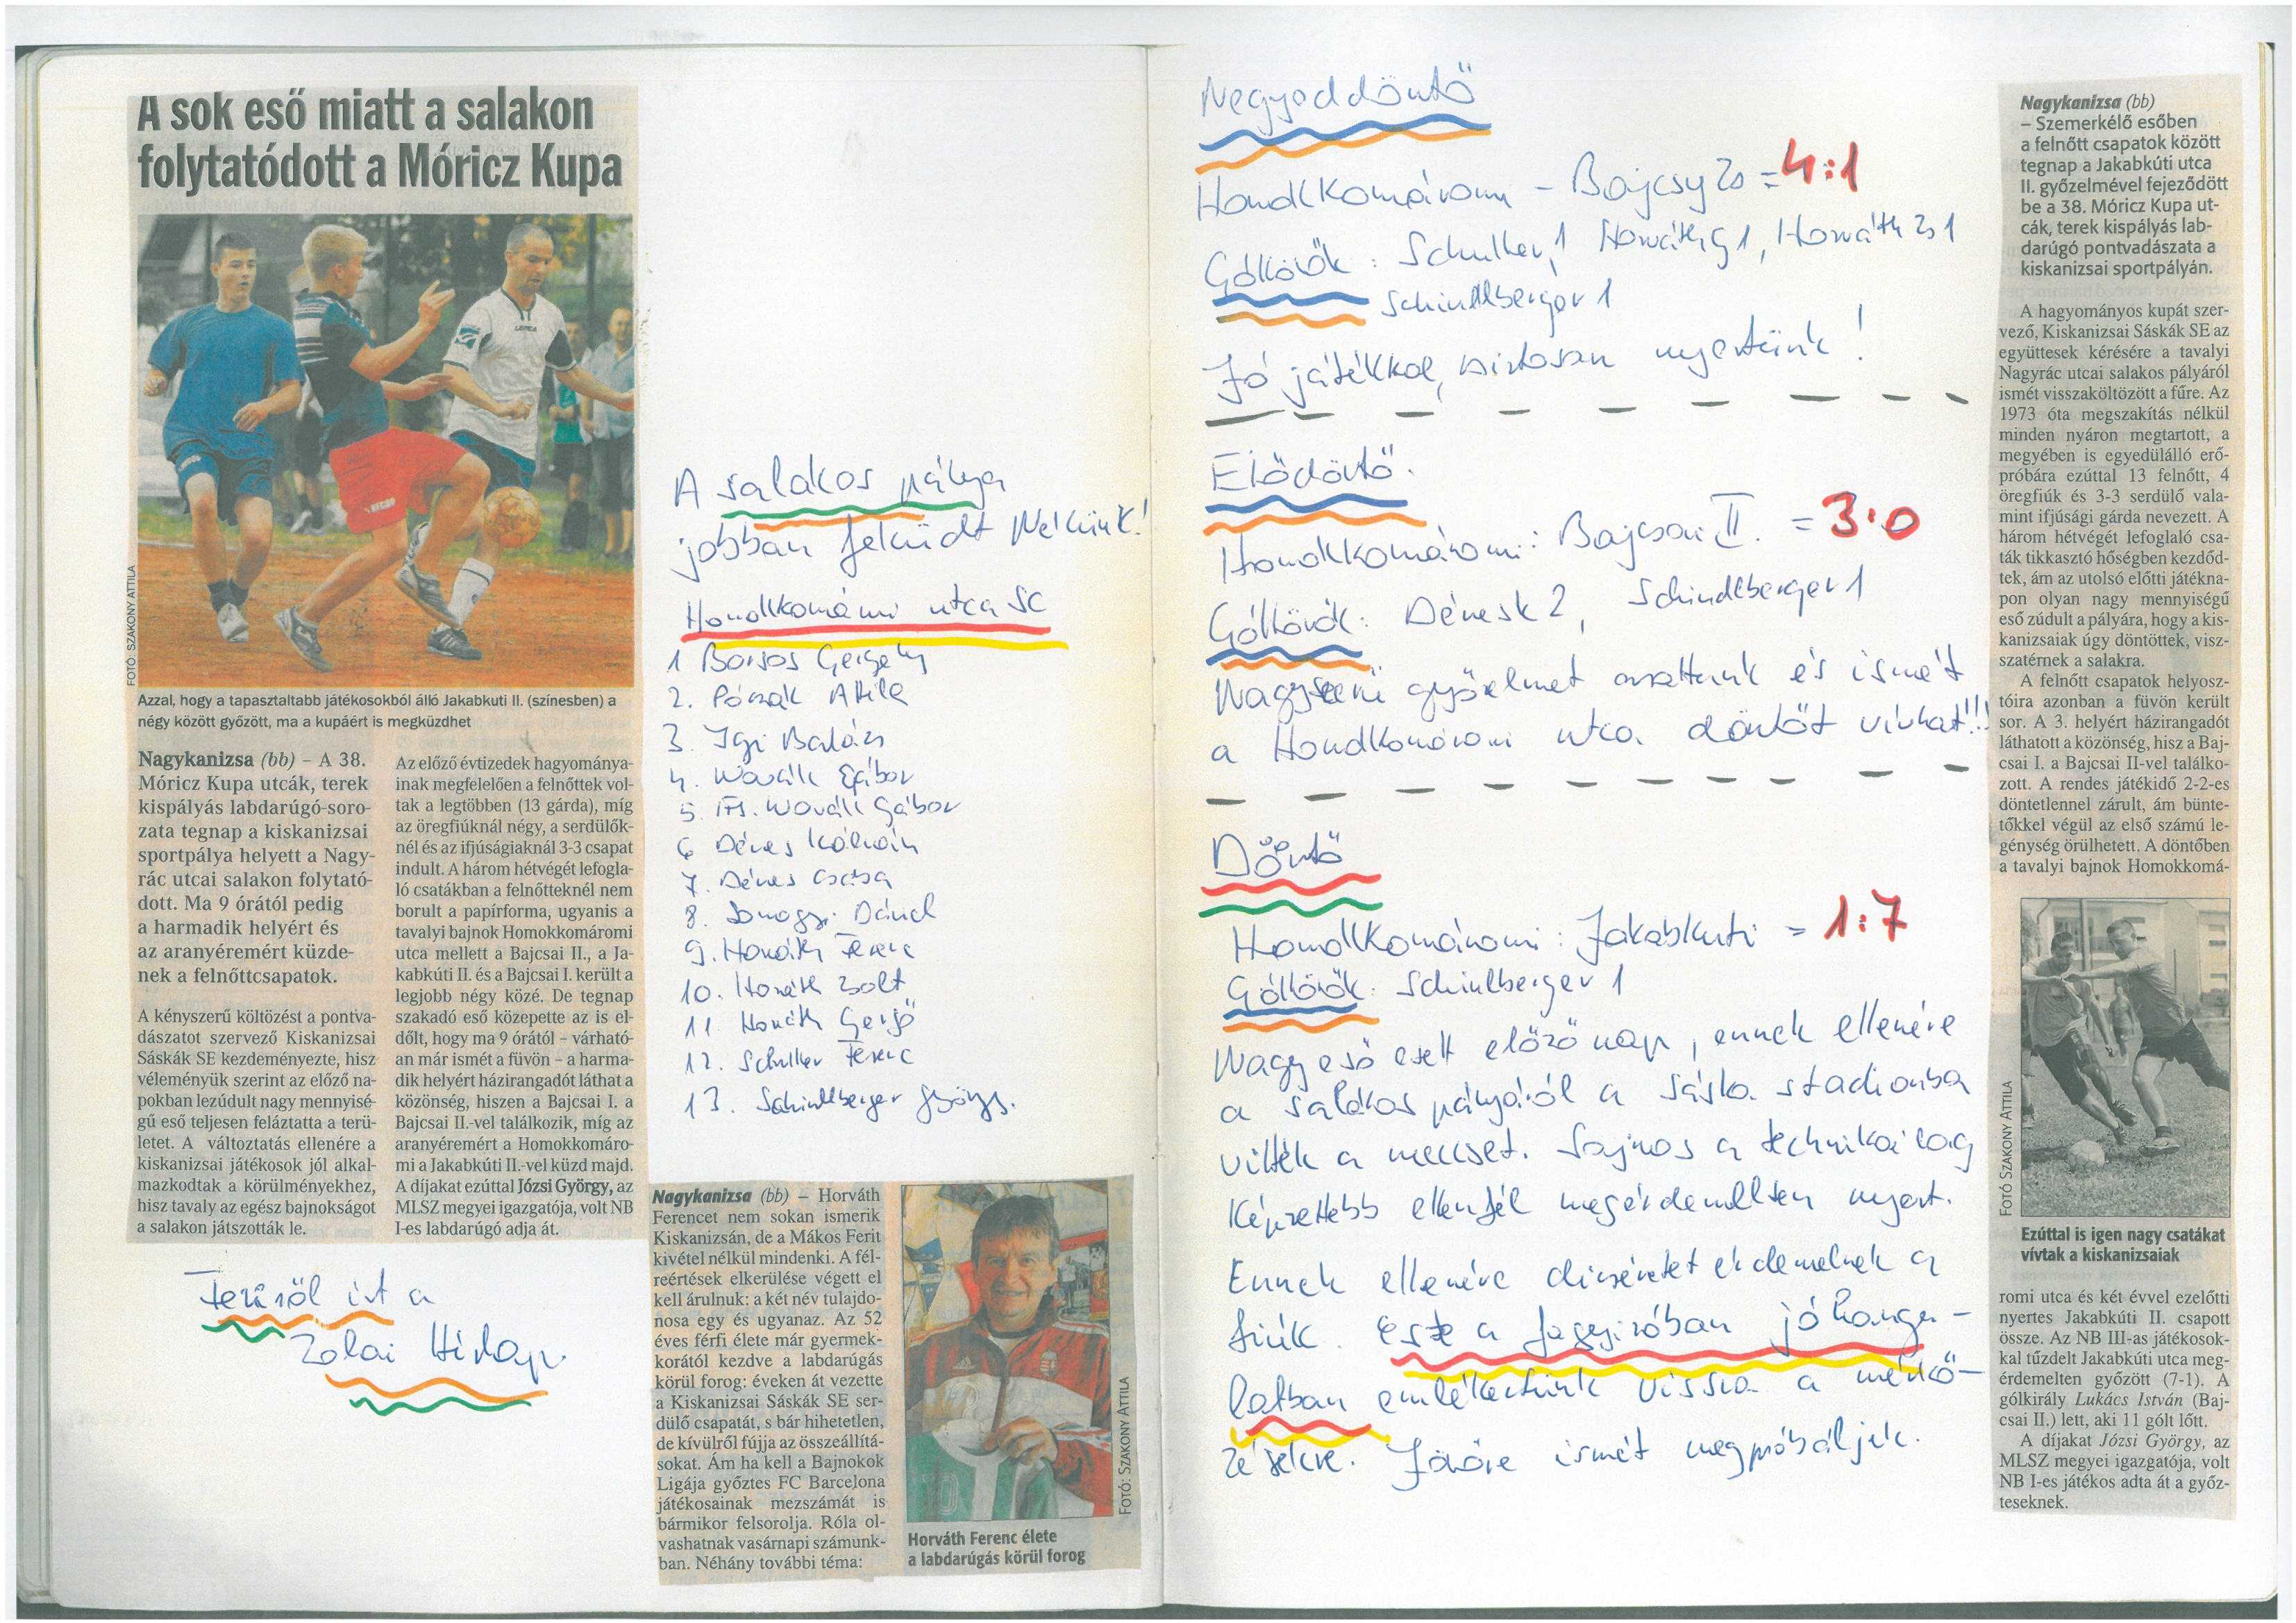 A sok eső miatt a salakon
folytatódott a Móricz Kupa
FOTÓ: SZAKONY ATTILA
Azzal, hogy a tapasztaltabb játékosokból álló Jakabkuti II. (színesben) a
négy között győzött, ma a kupáért is megküzdhet
Nagykanizsa (bb) – A 38.
Móricz Kupa utcák, terek
kispályás labdarúgó-soro-
zata tegnap a kiskanizsai
sportpálya helyett a Nagy-
rác utcai salakon folytató-
dott. Ma 9 órától pedig
a harmadik helyért és
az aranyéremért küzde-
nek a felnőttcsapatok.
A kényszerű költözést a pontva-
dászatot szervező Kiskanizsai
Sáskák SE kezdeményezte, hisz
véleményük szerint az előző na-
pokban lezúdult nagy mennyisé-
gű eső teljesen feláztatta a terü-
letet. A változtatás ellenére a
kiskanizsai játékosok jól alkal-
mazkodtak a körülményekhez,
hisz tavaly az egész bajnokságot
a salakon játszották le.
Az előző évtizedek hagyománya-
inak megfelelően a felnőttek vol-
tak a legtöbben (13 gárda), míg
az öregfiúknál négy, a serdülők-
nél és az ifjúságiaknál 3-3 csapat
indult. A három hétvégét lefogla-
ló csatákban a felnőtteknél nem
borult a papírforma, ugyanis a
tavalyi bajnok Homokkomáromi
utca mellett a Bajcsai II., a Ja-
kabkúti II. és a Bajcsai I. került a
legjobb négy közé. De tegnap
szakadó eső közepette az is el-
dőlt, hogy ma 9 órától – várható-
an már ismét a füvön – a harma-
dik helyért házirangadót láthat a
közönség, hiszen a Bajcsai I. a
Bajcsai II.-vel találkozik, míg az
aranyéremért a Homokkomáro-
mi a Jakabkúti II.-vel küzd majd.
A díjakat ezúttal Józsi György, az
MLSZ megyei igazgatója, volt NB
I-es labdarúgó adja át.
Feriről írt a
Zalai Hírlap.
A salakos pálya
jobban feküdt Nekünk!
Homokkomáromi utca SC
1 Borsos Gergely
2. Pózsák Attila
3. Igi Balázs
4. Novák Gábor
5. Ifj. Novák Gábor
6 Dénes Kálmán
7. Dénes Csaba
8. Somogyi Dániel
9. Horváth Ferenc
10. Horváth Zsolt
11. Horváth Gergő
12. Schuller Ferenc
13. Schindlberger György.
Nagykanizsa (bb) – Horváth
Ferencet nem sokan ismerik
Kiskanizsán, de a Mákos Ferit
kivétel nélkül mindenki. A fél-
reértések elkerülése végett el
kell árulnuk: a két név tulajdo-
nosa egy és ugyanaz. Az 52
éves férfi élete már gyermek-
korától kezdve a labdarúgás
körül forog: éveken át vezette
a Kiskanizsai Sáskák SE ser-
dülő csapatát, s bár hihetetlen,
de kívülről fújja az összeállítá-
sokat. Ám ha kell a Bajnokok
Ligája győztes FC Barcelona
játékosainak mezszámát is
bármikor felsorolja. Róla ol-
vashatnak vasárnapi számunk-
ban. Néhány további téma:
FOTÓ: SZAKONY ATTILA
Horváth Ferenc élete
a labdarúgás körül forog
Negyeddöntő
Homokkomáromi – Bajcsy Zs = 4:1
Góllövők: Schuller 1, Horváth G 1, Horváth Zs 1
Schindlberger 1
Jó játékkal, biztosan nyertünk!
Elődöntő.
Homokkomáromi: Bajcsai II. = 3:0
Góllövők: Dénes K 2, Schindlberger 1
Nagyszerű győzelmet arattunk és ismét
a Homokkomáromi utca döntőt vívhat!!!
Döntő
Homokkomáromi: Jakabkuti = 1:7
Góllövők: Schindlberger 1
Nagy eső esett előző nap, ennek ellenére
a salakos pályáról a Sáska stadionba
vitték a meccset. Sajnos a technikailag
képzettebb ellenfél megérdemelten nyert.
Ennek ellenére dicséretet érdemelnek a
fiúk. Este a fagyizóban jó hangu-
latban emlékeztünk vissza a mérkő-
zésekre. Jövőre ismét megpróbáljuk.
Nagykanizsa (bb)
– Szemerkélő esőben
a felnőtt csapatok között
tegnap a Jakabkúti utca
II. győzelmével fejeződött
be a 38. Móricz Kupa ut-
cák, terek kispályás lab-
darúgó pontvadászata a
kiskanizsai sportpályán.
A hagyományos kupát szer-
vező, Kiskanizsai Sáskák SE az
együttesek kérésére a tavalyi
Nagyrác utcai salakos pályáról
ismét visszaköltözött a fűre. Az
1973 óta megszakítás nélkül
minden nyáron megtartott, a
megyében is egyedülálló erő-
próbára ezúttal 13 felnőtt, 4
öregfiúk és 3-3 serdülő vala-
mint ifjúsági gárda nevezett. A
három hétvégét lefoglaló csa-
ták tikkasztó hőségben kezdőd-
tek, ám az utolsó előtti játékna-
pon olyan nagy mennyiségű
eső zúdult a pályára, hogy a kis-
kanizsaiak úgy döntöttek, visz-
szatérnek a salakra.
A felnőtt csapatok helyosz-
tóira azonban a füvön került
sor. A 3. helyért házirangadót
láthatott a közönség, hisz a Baj-
csai I. a Bajcsai II-vel találko-
zott. A rendes játékidő 2-2-es
döntetlennel zárult, ám bünte-
tőkkel végül az első számú le-
génység örülhetett. A döntőben
a tavalyi bajnok Homokkomá-
FOTÓ SZAKONY ATTILA
Ezúttal is igen nagy csatákat
vívtak a kiskanizsaiak
romi utca és két évvel ezelőtti
nyertes Jakabkúti II. csapott
össze. Az NB III-as játékosok-
kal tűzdelt Jakabkúti utca meg-
érdemelten győzött (7-1). A
gólkirály Lukács István (Baj-
csai II.) lett, aki 11 gólt lőtt.
A díjakat Józsi György, az
MLSZ megyei igazgatója, volt
NB I-es játékos adta át a győz-
teseknek.